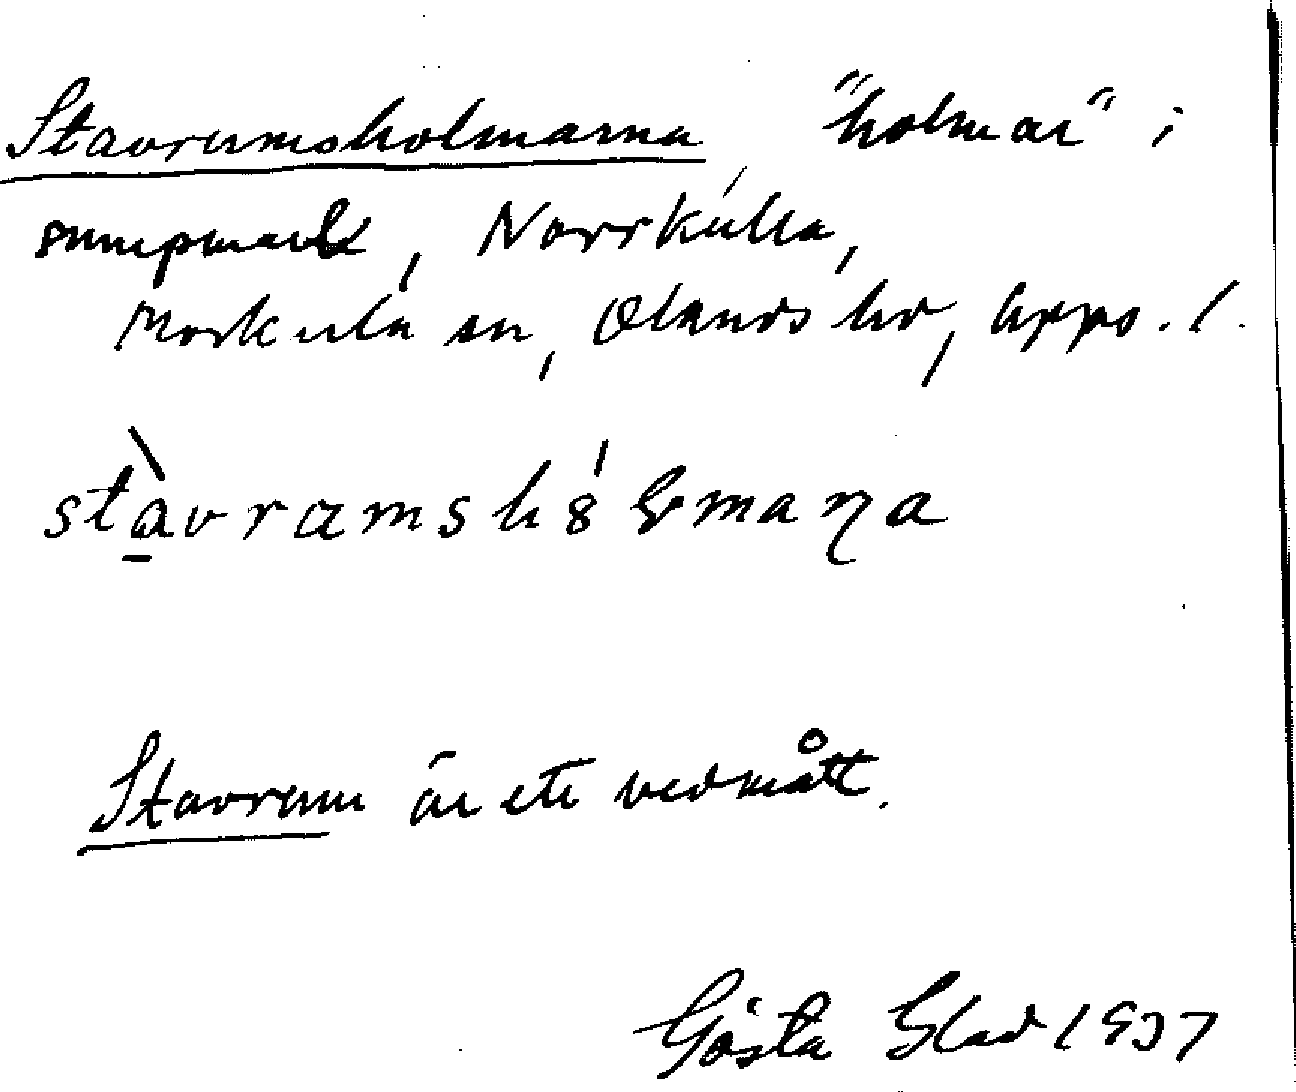 Stavrumsholmarna, "holmar" i
sumpmark, Norrkulla,
Morkulla sn, Olands hd, Upps. l.
stàvramshólmaɳa
Stavrum är ett vedmått.
Gösta Blad 1937